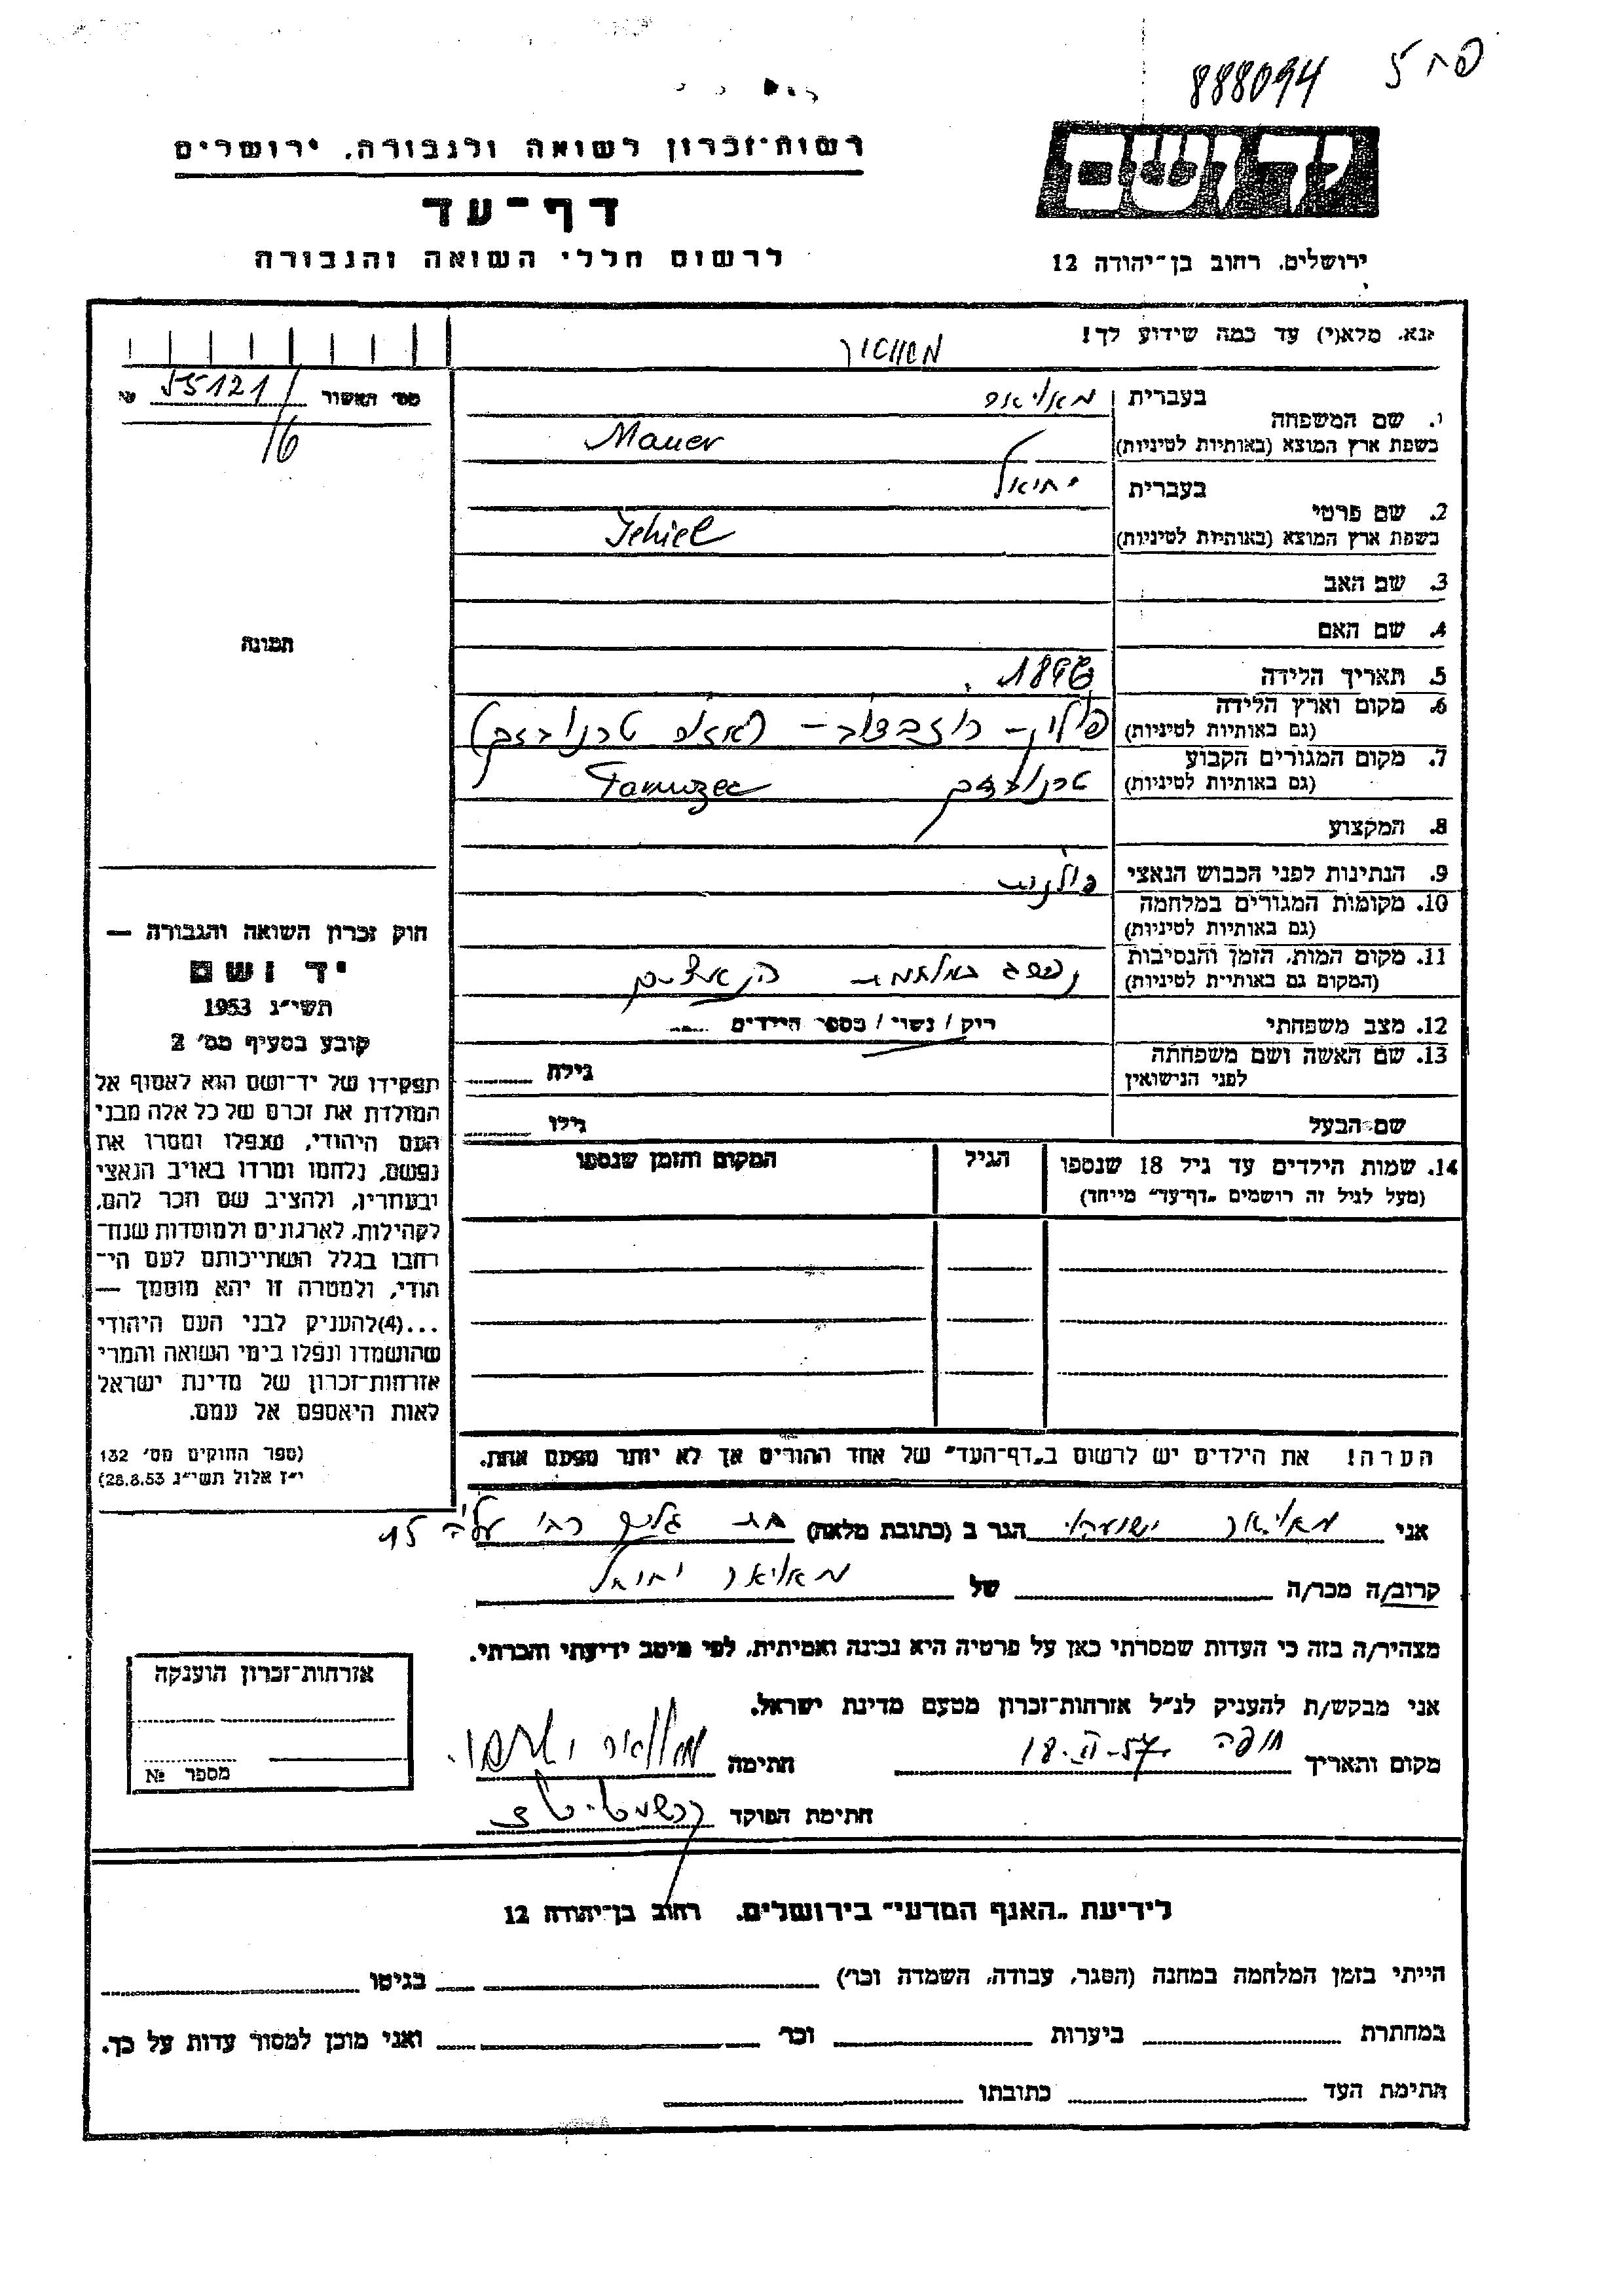 888094
רשות־זכרון לשואה ולגבורה, ירושלים
דף־עד
לרשום חללי השואה והגבורה
ידושם
ירושלים, רחוב בן־יהודה 12
נא, מלא(י) עד כמה שידוע לך!
מס׳ האשור 55121/ №
16
1. שם המשפחה
בעברית
בשפת ארץ המוצא (באותיות לטיניות) Mauer
2. שם פרטי
בעברית יחיאל
בשפת ארץ המוצא (באותיות לטיניות) Jehiel
3. שם האב
4. שם האם
5. תאריך הלידה
6. מקום וארץ הלידה
(גם באותיות לטיניות)
7. מקום המגורים הקבוע
(גם באותיות לטיניות)
8. המקצוע
9. הנתינות לפני הכבוש הנאצי פולנית
10. מקומות המגורים במלחמה
(גם באותיות לטיניות)
11. מקום המות, הזמן והנסיבות
(המקום גם באותיות לטיניות)
12. מצב משפחתי רוק / נשוי / מספר הילדים
13. שם האשה ושם משפחתה
לפני הנישואין
גילה
שם הבעל גילו
14. שמות הילדים עד גיל 18 שנספו הגיל המקום והזמן שנספו
(מעל לגיל זה רושמים „דף־עד״ מייחד)
הערה! את הילדים יש לרשום ב„דף־העד״ של אחד ההורים אך לא יותר מפעם אחת.
תמונה
חוק זכרון השואה והגבורה —
יד ושם
תשי״ג 1953
קובע בסעיף מס׳ 2
תפקידו של יד־ושם הוא לאסוף אל
המולדת את זכרם של כל אלה מבני
העם היהודי, שנפלו ומסרו את
נפשם, נלחמו ומרדו באויב הנאצי
ובעוזריו, ולהציב שם וזכר להם,
לקהילות, לארגונים ולמוסדות שנח־
רבו בגלל השתייכותם לעם הי־
הודי, ולמטרה זו יהא מוסמך —
...(4)להעניק לבני העם היהודי
שהושמדו ונפלו בימי השואה והמרי
אזרחות־זכרון של מדינת ישראל
לאות היאספם אל עמם.
(ספר החוקים מס׳ 132
י״ז אלול תשי״ג 28.8.53)
אני הגר ב (כתובת מלאה)
קרוב/ה מכר/ה של
מצהיר/ה בזה כי העדות שמסרתי כאן על פרטיה היא נכונה ואמיתית, לפי מיטב ידיעתי והכרתי.
אני מבקש/ת להעניק לנ״ל אזרחות־זכרון מטעם מדינת ישראל.
מקום ותאריך חיפה 18.II-57 חתימה
חתימת הפוקד
אזרחות־זכרון הוענקה
מספר №
לידיעת „האגף המדעי״ בירושלים, רחוב בן־יהודה 12
הייתי בזמן המלחמה במחנה (הסגר, עבודה, השמדה וכו׳) בגיטו
במחתרת ביערות וכו׳ ואני מוכן למסור עדות על כך.
חתימת העד כתובתו